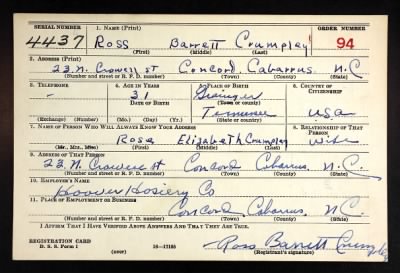 SERIAL NUMBER 1. NAME (Print) ORDER NUMBER
4437 Ross Barrett Crumpley 94
(First) (Middle) (Last)
2. ADDRESS (Print)
23 N. Crowell st Concord Cabarrus N.C
(Number and street or R. F. D. number) (Town) (County) (State)
3. TELEPHONE 4. AGE IN YEARS 5. PLACE OF BIRTH 6. COUNTRY OF CITIZENSHIP
- 31
DATE OF BIRTH (Town or county)
Tennessee USA
(Exchange) (Number) (Mo.) (Day) (Yr.) (State or country)
7. NAME OF PERSON WHO WILL ALWAYS KNOW YOUR ADDRESS 8. RELATIONSHIP OF THAT PERSON
Rose Elizabeth Crumpley Wife
(Mr., Mrs., Miss) (First) (Middle) (Last)
9. ADDRESS OF THAT PERSON
23 N. Concord Cabarrus N.C.
(Number and street or R. F. D. number) (Town) (County) (State)
10. EMPLOYER'S NAME
Hoover Hosiery Co
11. PLACE OF EMPLOYMENT OR BUSINESS
Concord Cabarrus, N.C.
(Number and street or R. F. D. number) (Town) (County) (State)
I AFFIRM THAT I HAVE VERIFIED ABOVE ANSWERS AND THAT THEY ARE TRUE.
REGISTRATION CARD
D. S. S. Form 1 (over) 16—17105 Ross Barrett Crumpley
(Registrant's signature)